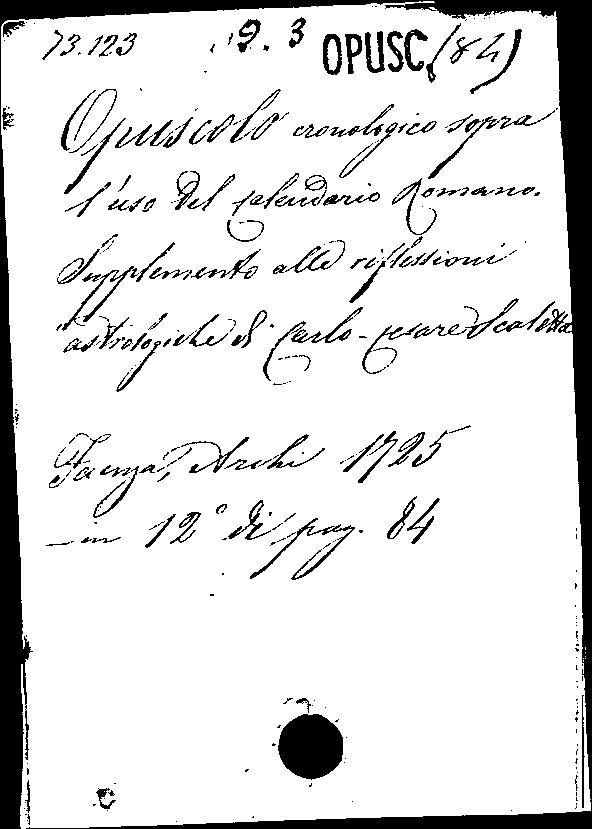 73.123 9. 3 OPUSC. (84)
Opuscolo cronologico sopra
l'uso del calendario Romano.
Supplemento alle riflessioni
astrologiche di Carlo-Cesare Scaletta
Faenza, Archi 1725
— in 12° di pag. 84